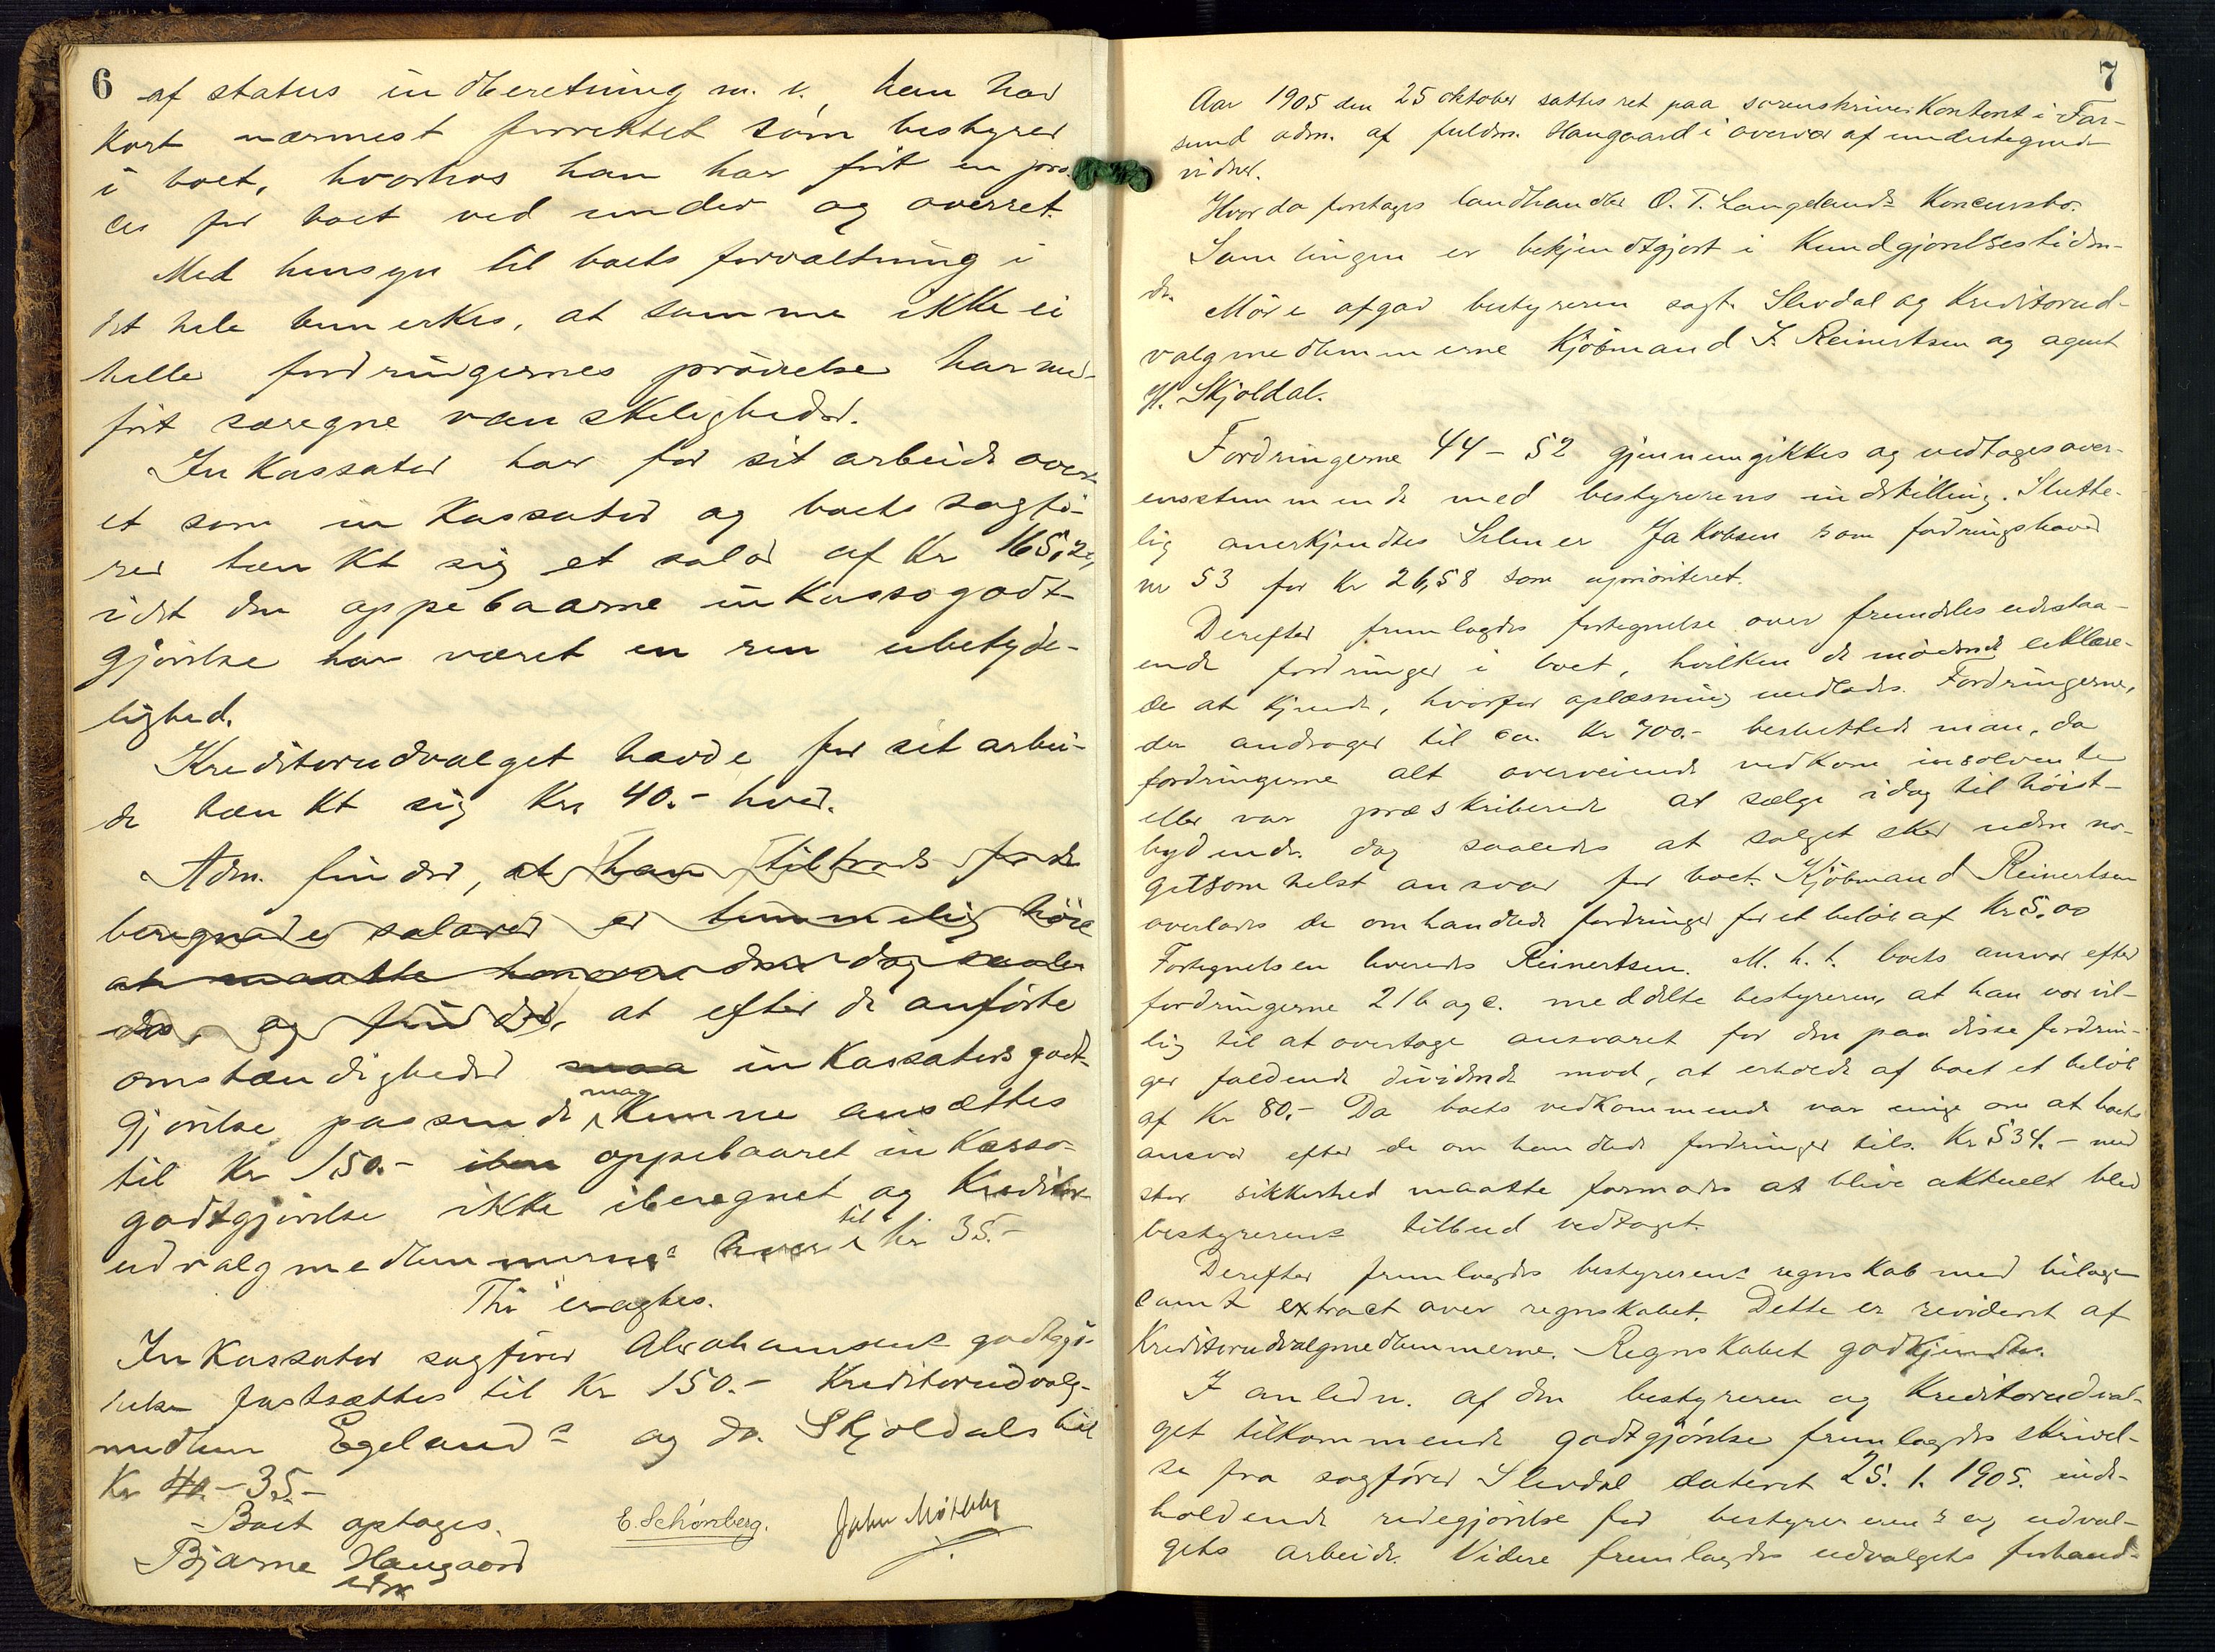 6
af status indberetning m. v., han har
kort nærmest forrettet som bestyrer
i boet, hvorhos han har ført en pro-
ces for boet ved under og overret.
Med hensyn til boets forvaltning i
det hele bemerkes, at samme ikke ei
heller fordringernes prøvelse har med-
ført særegne vanskeligheder.
Inkassator har for sit arbeide over-
et som inkassator og boets sagfø-
rer tænkt sig et salær af Kr 165,2
idet den oppebaarne inkassogodt-
gjørelse har været en ren ubetyde-
lighed.
Kreditorudvalget havde for sit arbei-
de tænkt sig Kr. 40.- hver.
Adm. finder, at han tiltrods for de
beregnede salærer er temmelig høie
at maatte dem dog saale-
des, og finder, at efter de anførte
omstændigheder maa inkassators godt-
gjørelse passende mag kunne ansættes
til Kr 150.- iben oppebaaret inkasso-
godtgjørelse ikke iberegnet og Kreditor-
udvalgmedlemmernes hver til kr 35.-
Thi eragtes.
Inkassator sagfører Abrahamsens godtgjø-
relse fastsættes til Kr 150.- Kreditorudvalg-
medlem Egelands og do. Skjoldals til
Kr 40.- 35.-
Boet optages.
Bjarne Haugaard
edsv
E. Schönberg.
John
7
Aar 1905 den 25 oktober sattes ret paa sorenskriverkontoret i Far-
sund adm. af fuldm. Haugaard i overvær af undertegnede
vidner.
Hvorda foretoges landhandler O. T. Langelands Koncursbo.
Samlingen er bekjendtgjort i Kundgjørelsestiden-
de.
Møde afgav bestyreren sagf. Slevdal og Kreditorud-
valgmedlemmerne Kjøbmand J. Reinertsen og agent
H. Skjoldal.
Fordringerne 44 – 52 gjennemgikkes og vedtoges over-
ensstemmende med bestyrerens indstilling. Slutte-
lig anerkjendtes Selmer Jakobsen som fordringshaver
nr 53 for Kr 26,58 som uprioriteret.
Derefter fremlagdes fortegnelse over fremdeles udestaa-
ende fordringer i boet, hvilken de mødende erklære-
de at kjende, hvorfor oplæsning undlodes. Fordringerne,
der andrager til ca. Kr 700.- besluttede man, da
fordringerne alt overveiende vedkom insolvente
eller var præskriberede at sælge idag til høist-
bydende dog saaledes at salget sker uden no-
getsomhelst ansvar for boet. Kjøbmand Reinertsen
overlodes de omhandlede fordringer for et beløb af Kr 5,00
Fortegnelsen leveredes Reinertsen. M. h. t. boets ansvar efter
fordringerne 21b og c. meddelte bestyreren, at han var vil-
lig til at overtage ansvaret for den paa disse fordrin-
ger faldende dividende mod, at erholde af boet et beløb
af Kr 80.- Da boets vedkommende var enige om at boets
ansvar efter de omhandlede fordringer tils. Kr 534.- med
stor sikkerhed maatte formodes at blive aktuelt blev
bestyrerens tilbud vedtaget.
Derefter fremlagdes bestyrerens regnskab med bilage
samt extract over regnskabet. Dette er revideret af
Kreditorudvalgmedlemmerne. Regnskabet godkjendtes.
I anledn. af den bestyreren og Kreditorudval-
get tilkommende godtgjørelse fremlagdes skrivel-
se fra sagfører Slevdal dateret 25. 1. 1905. inde-
holdende redegjørelse for bestyrerens og udval-
gets arbeide. Videre fremlagdes udvalgets forhand-